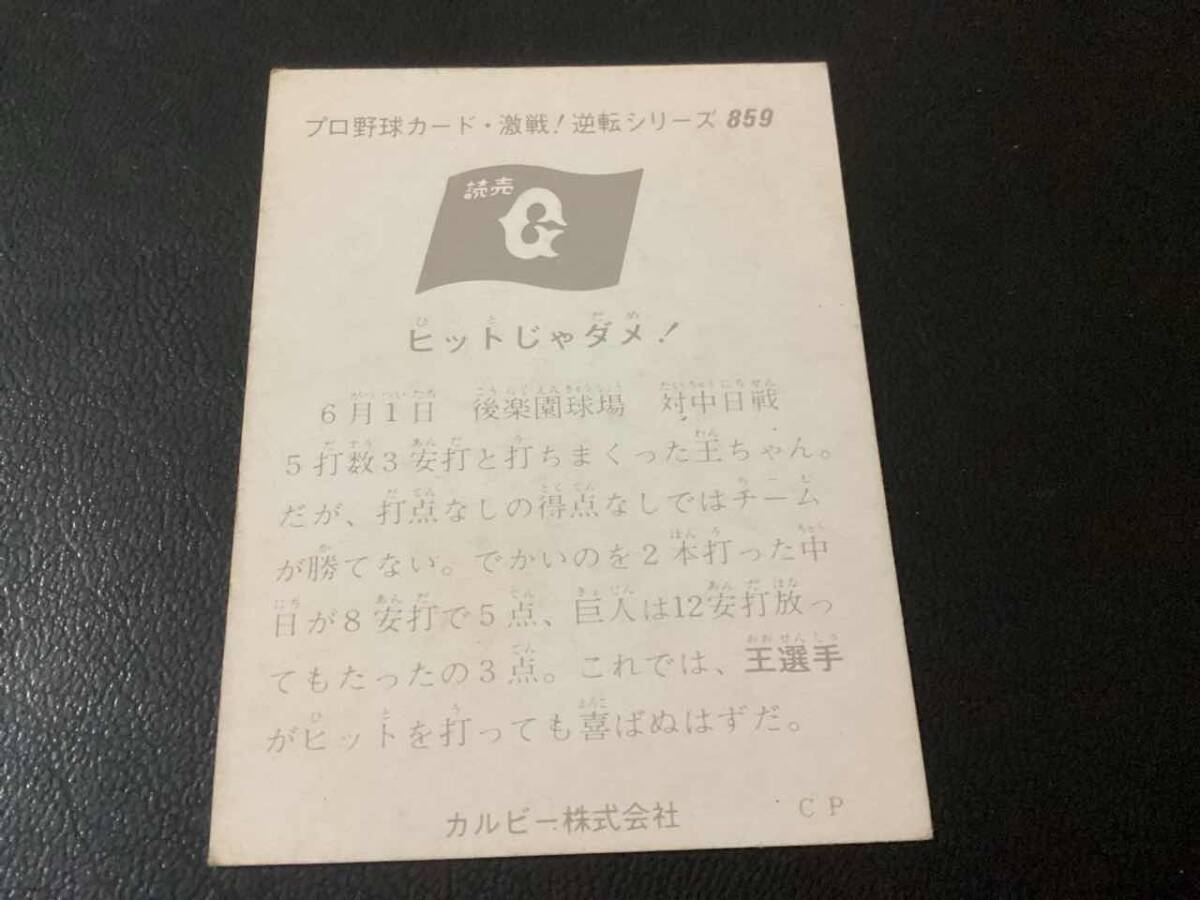 プロ野球カード・激戦!逆転シリーズ 859
読売
G
ヒットじゃダメ!
6月1日 後楽園球場 対中日戦
5打数3安打と打ちまくった王ちゃん。
だが、打点なしの得点なしではチーム
が勝てない。でかいのを2本打った中
日が8安打で5点、巨人は12安打放っ
てもたったの3点。これでは、王選手
がヒットを打っても喜ばぬはずだ。
カルビー株式会社 CP